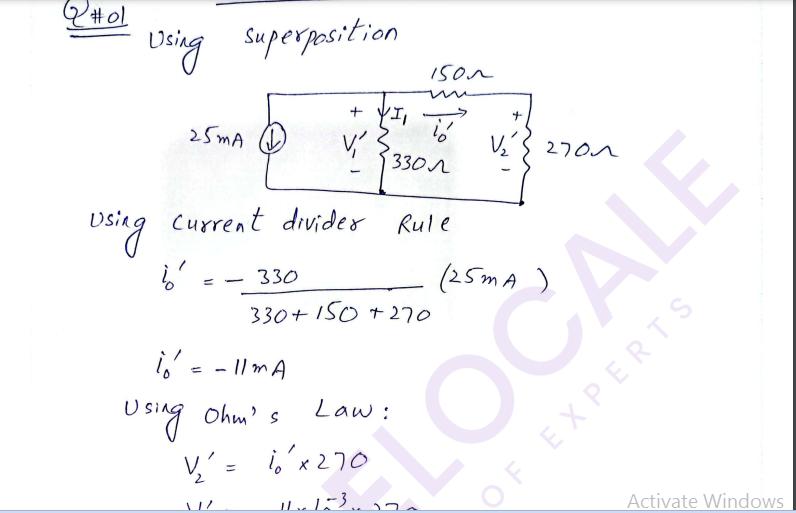 Q#01
Using superposition
150Ω
+ I₁ i₀' +
25mA V₁' 330Ω V₂' 270Ω
- -
Using current divider Rule
i₀' = - 330 / 330+150+270 (25mA)
i₀' = -11mA
Using Ohm's Law:
V₂' = i₀' x 270
ELOCALE
OF EXPERTS
Activate Windows